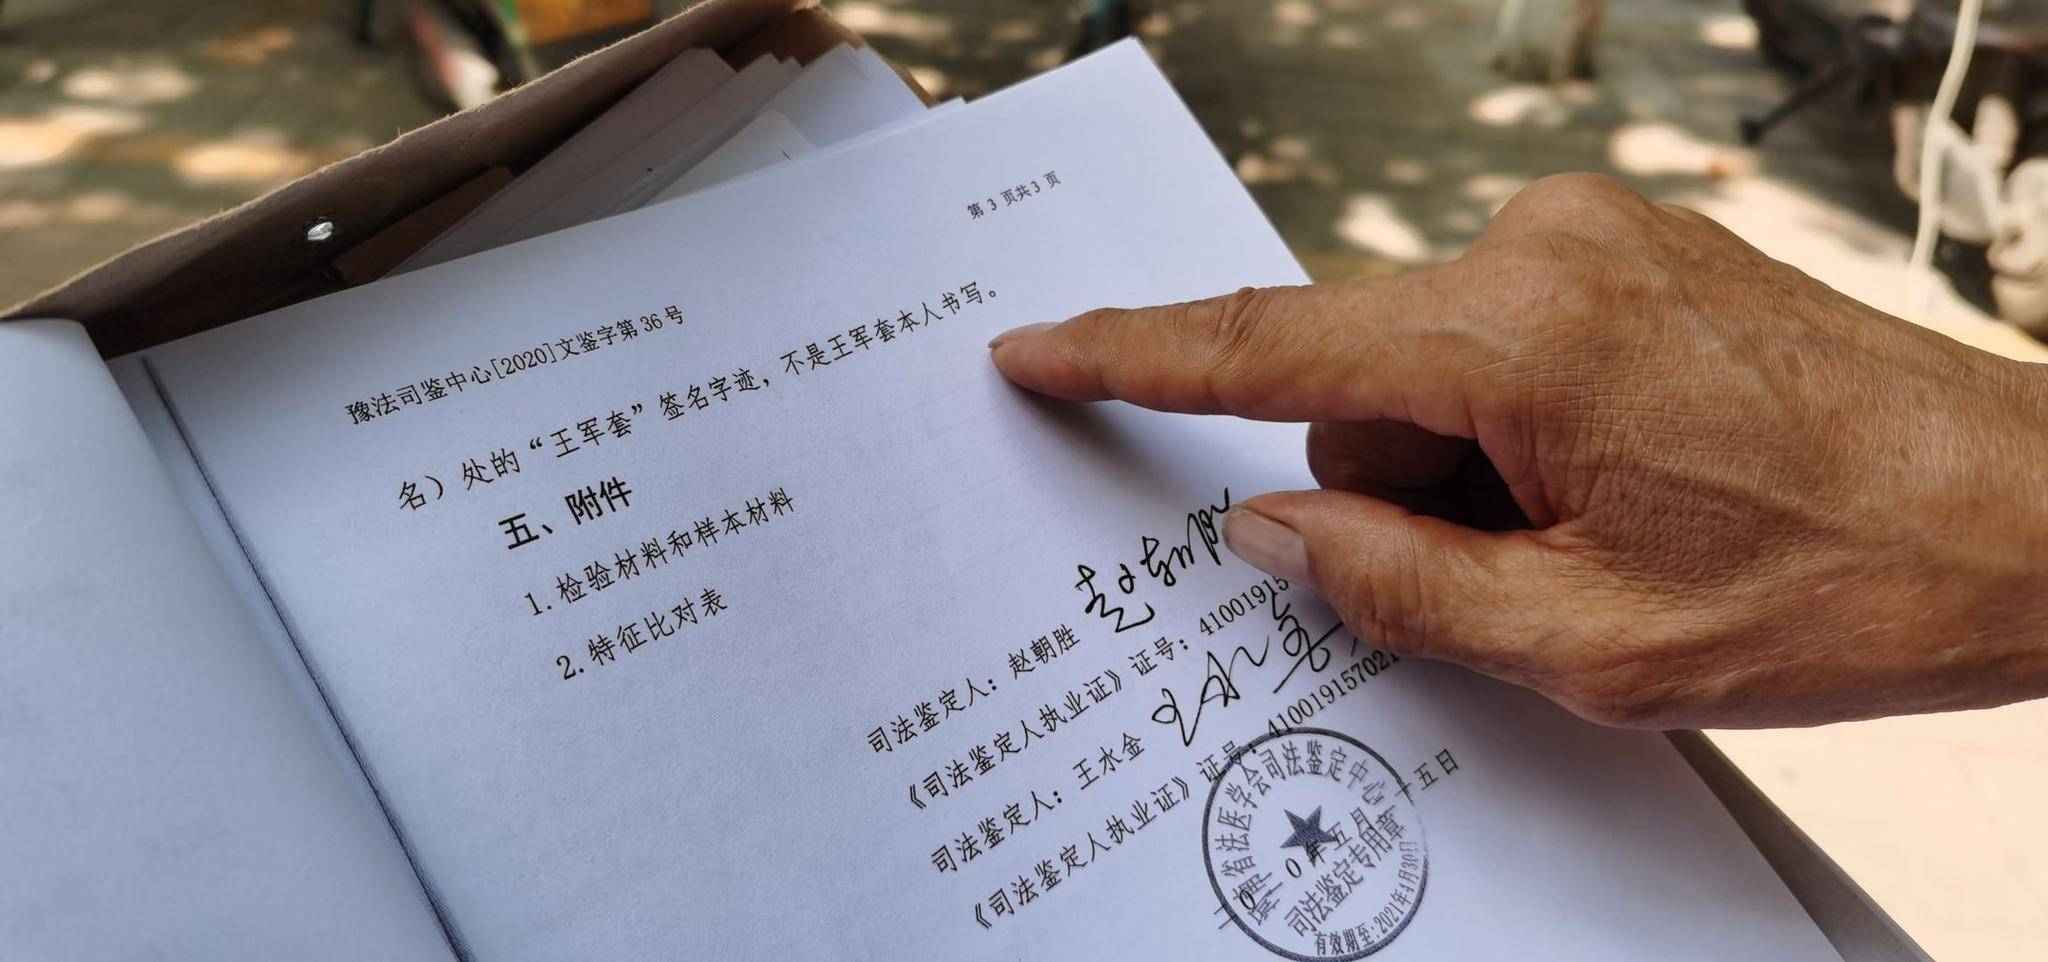 第 3 页共 3 页
豫法司鉴中心[2020]文鉴字第 36 号
名）处的“王军套”签名字迹，不是王军套本人书写。
五、附件
1. 检验材料和样本材料
2. 特征比对表
司法鉴定人：赵朝胜
《司法鉴定人执业证》证号：41001915
司法鉴定人：王水金
《司法鉴定人执业证》证号：410019157021
二0 0年五月 十五日
省法医学会司法鉴定中心
司法鉴定专用章
有效期至：2021年4月30日